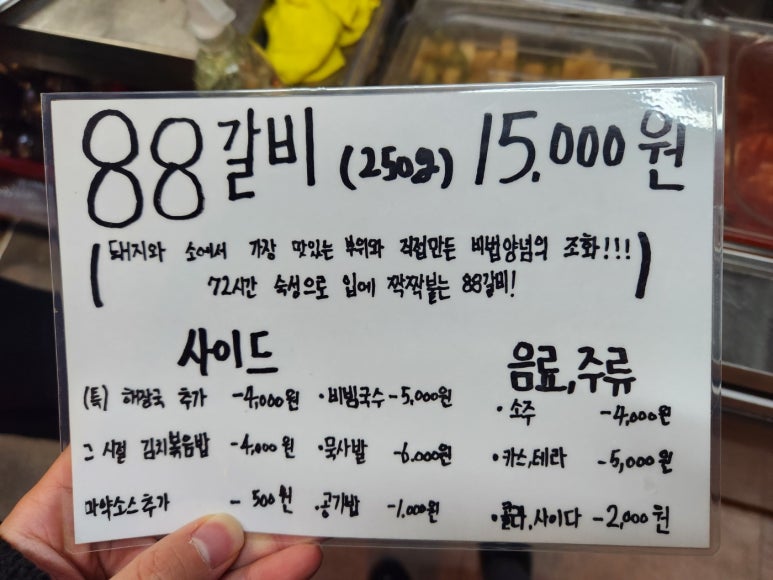 88갈비 (250g) 15.000원
(돼지와 소에서 가장 맛있는 부위와 직접만든 비법양념의 조화!!!
72시간 숙성으로 입에 짝짝붙는 88갈비!)
사이드
(특) 해장국 추가 -4,000원
그 시절 김치볶음밥 -4,000원
마약소스추가 - 500원
·비빔국수 -5,000원
·묵사발 -6.000원
·공기밥 -1,000원
음료,주류
·소주 -4,000원
·카스,테라 -5,000원
·콜라,사이다 -2,000원